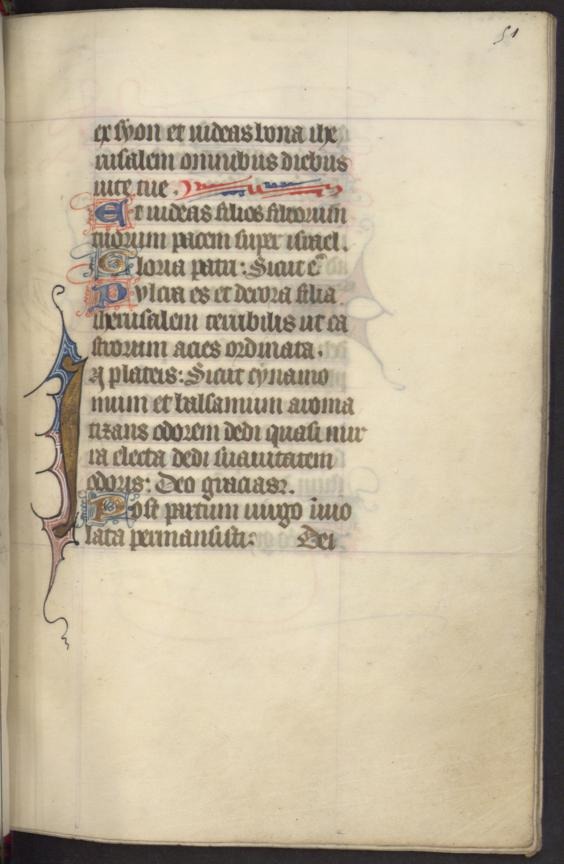 51
ex syon et uideas bona ihe
rusalem omnibus diebus
uite tue.
Et uideas filios filiorum
tuorum pacem super israel.
Gloria patri: Sicut e
Pulcra es et decora filia
iherusalem terribilis ut ca
strorum acies ordinata.
In plateis: Sicut cynamo
mum et balsamum aroma
tizans odorem dedi quasi mir
ra electa dedi suauitatem
odoris: Deo gracias.
Post partum uirgo inuio
lata permansisti: Dei